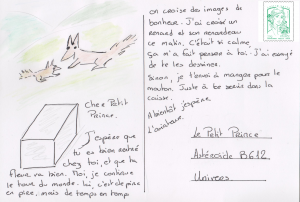 Cher Petit
Prince.
J'espère que
tu es bien rentré
chez toi, et que ta
fleur va bien. Moi, je continue
le tour du monde. Ici, c'est de pire
en pire, mais de temps en temps
on croise des images de
bonheur. J'ai croisé un
renard et son renardeau
ce matin. C'était si calme.
Ça m'a fait penser à toi. J'ai essayé
de te les dessiner.
Sinon, je t'envoi à manger pour le
mouton. Juste à la
caisse.
A bientôt j'espère.
L'aviateur.
Le Petit Prince
Astéroïde B612
Univers